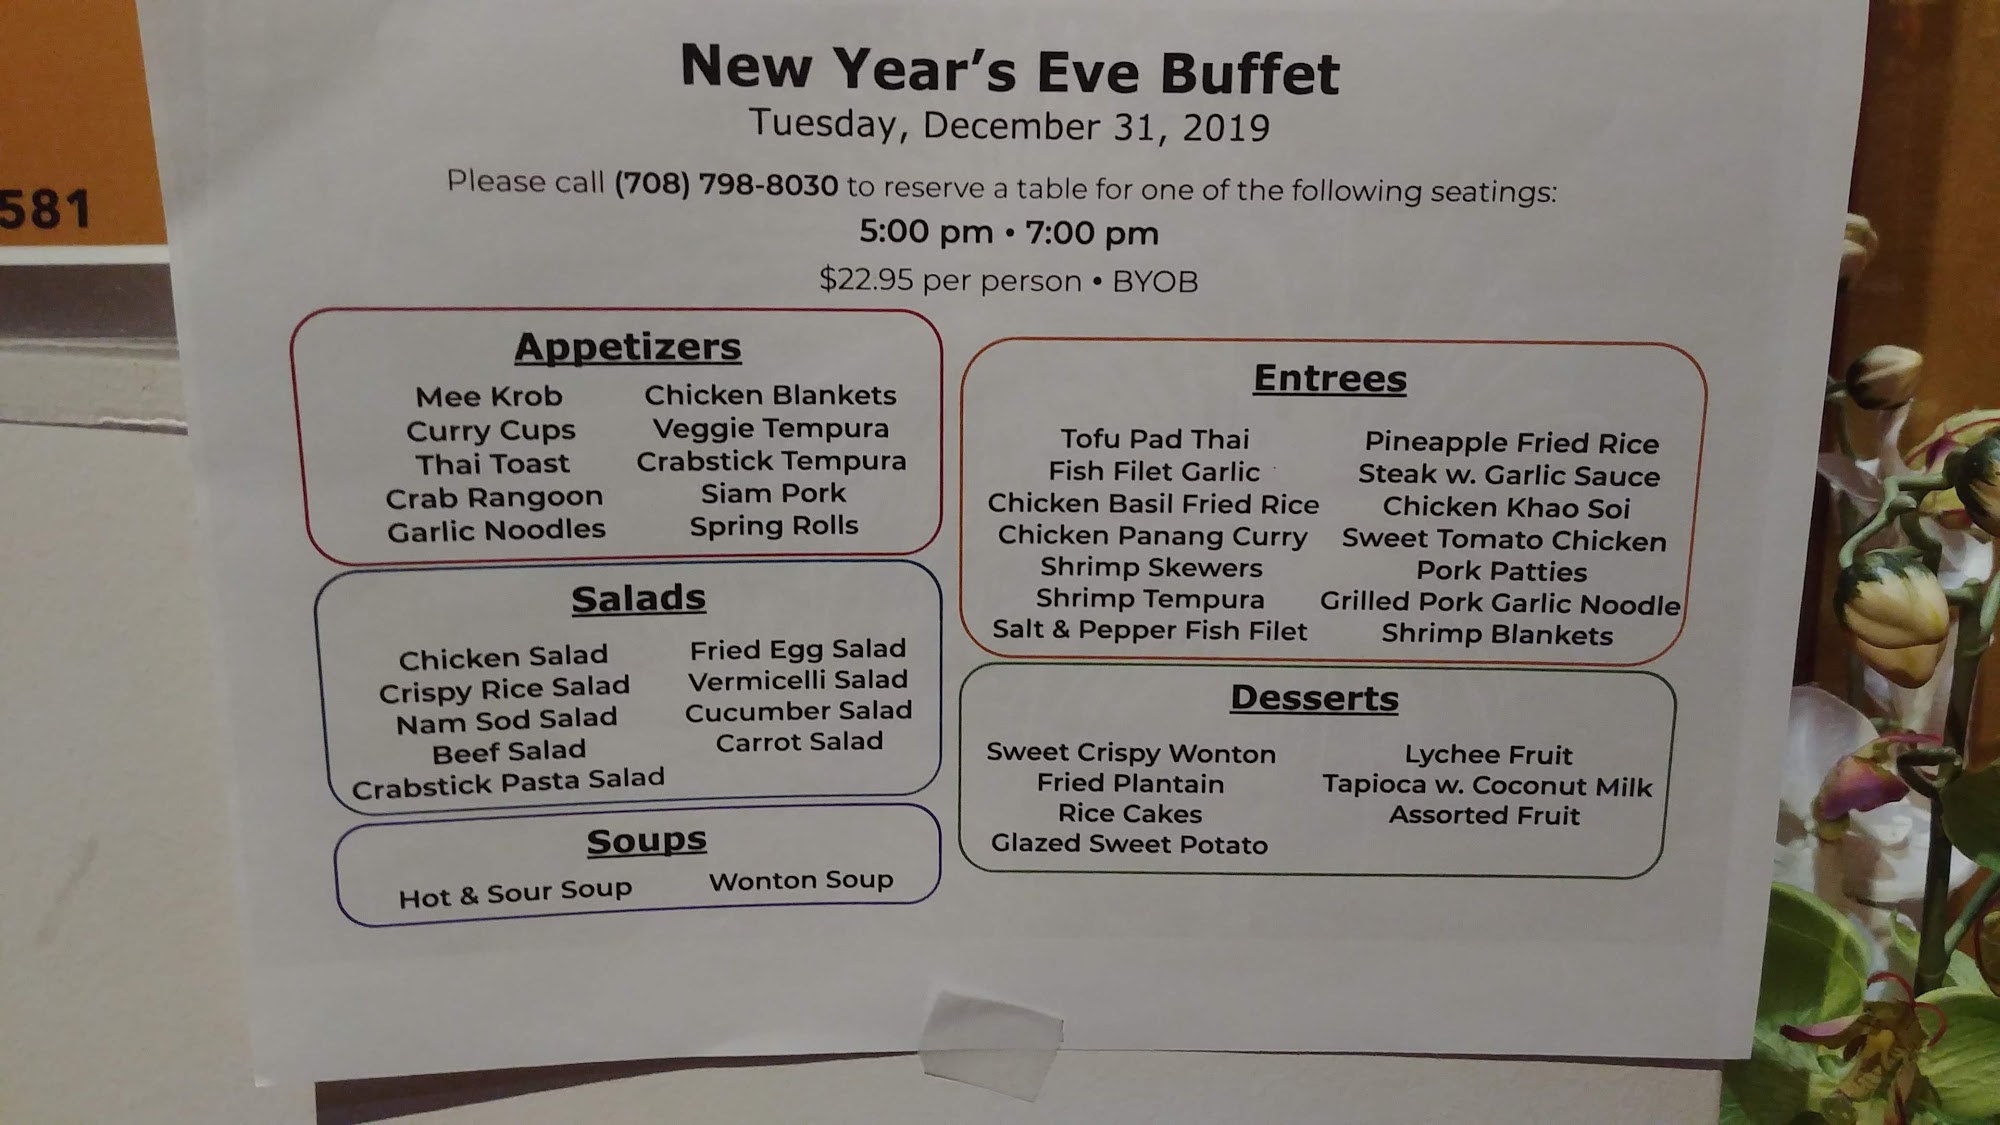 581
New Year's Eve Buffet
Tuesday, December 31, 2019
Please call (708) 798-8030 to reserve a table for one of the following seatings:
5:00 pm • 7:00 pm
$22.95 per person • BYOB
Appetizers
Mee Krob
Curry Cups
Thai Toast
Crab Rangoon
Garlic Noodles
Chicken Blankets
Veggie Tempura
Crabstick Tempura
Siam Pork
Spring Rolls
Salads
Chicken Salad
Crispy Rice Salad
Nam Sod Salad
Beef Salad
Crabstick Pasta Salad
Fried Egg Salad
Vermicelli Salad
Cucumber Salad
Carrot Salad
Soups
Hot & Sour Soup
Wonton Soup
Entrees
Tofu Pad Thai
Fish Filet Garlic
Chicken Basil Fried Rice
Chicken Panang Curry
Shrimp Skewers
Shrimp Tempura
Salt & Pepper Fish Filet
Pineapple Fried Rice
Steak w. Garlic Sauce
Chicken Khao Soi
Sweet Tomato Chicken
Pork Patties
Grilled Pork Garlic Noodle
Shrimp Blankets
Desserts
Sweet Crispy Wonton
Fried Plantain
Rice Cakes
Glazed Sweet Potato
Lychee Fruit
Tapioca w. Coconut Milk
Assorted Fruit